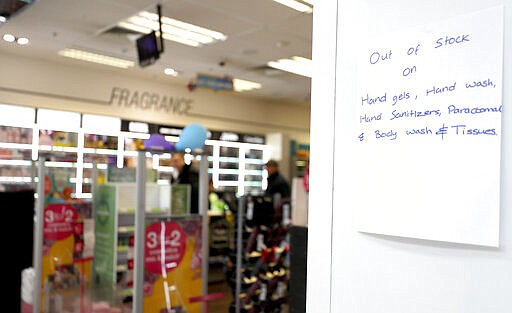 FRAGRANCE
3 for 2
3 for 2
Out of Stock
on
Hand gels, Hand wash,
Hand Sanitizers, Paracetamol
& Body wash & Tissues